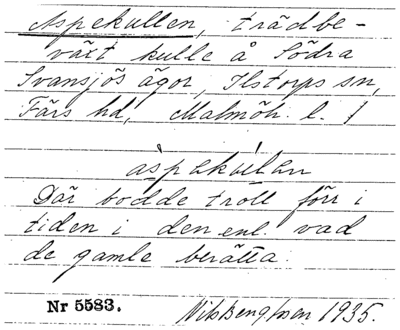 Aspekullen, trädbe-
växt kulle å Södra
Svansjös ägor, Ilstorps sn,
Färs hd, Malmöh. l.
aspekulan
Där bodde troll förr i
tiden i den enl. vad
de gamle berätta.
Nr 5583.
1935.